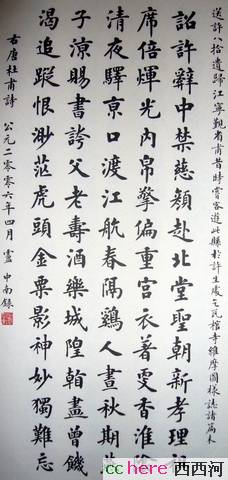 送許八拾遺歸江寧覲省甫昔時嘗客遊此縣於許生處乞瓦棺寺維摩圖樣誌諸篇末
詔許辭中禁慈顏赴北堂聖朝新孝理祖
席倍煇光內帛擎偏重宮衣著更香淮陰
清夜驛京口渡江航春隔鷄人晝秋期燕
子涼賜書誇父老壽酒樂城隍看畫曾饑
渴追蹤恨渺茫虎頭金粟影神妙獨難忘
右唐杜甫詩 公元二零零六年四月 盧中南錄
cchere 西西河